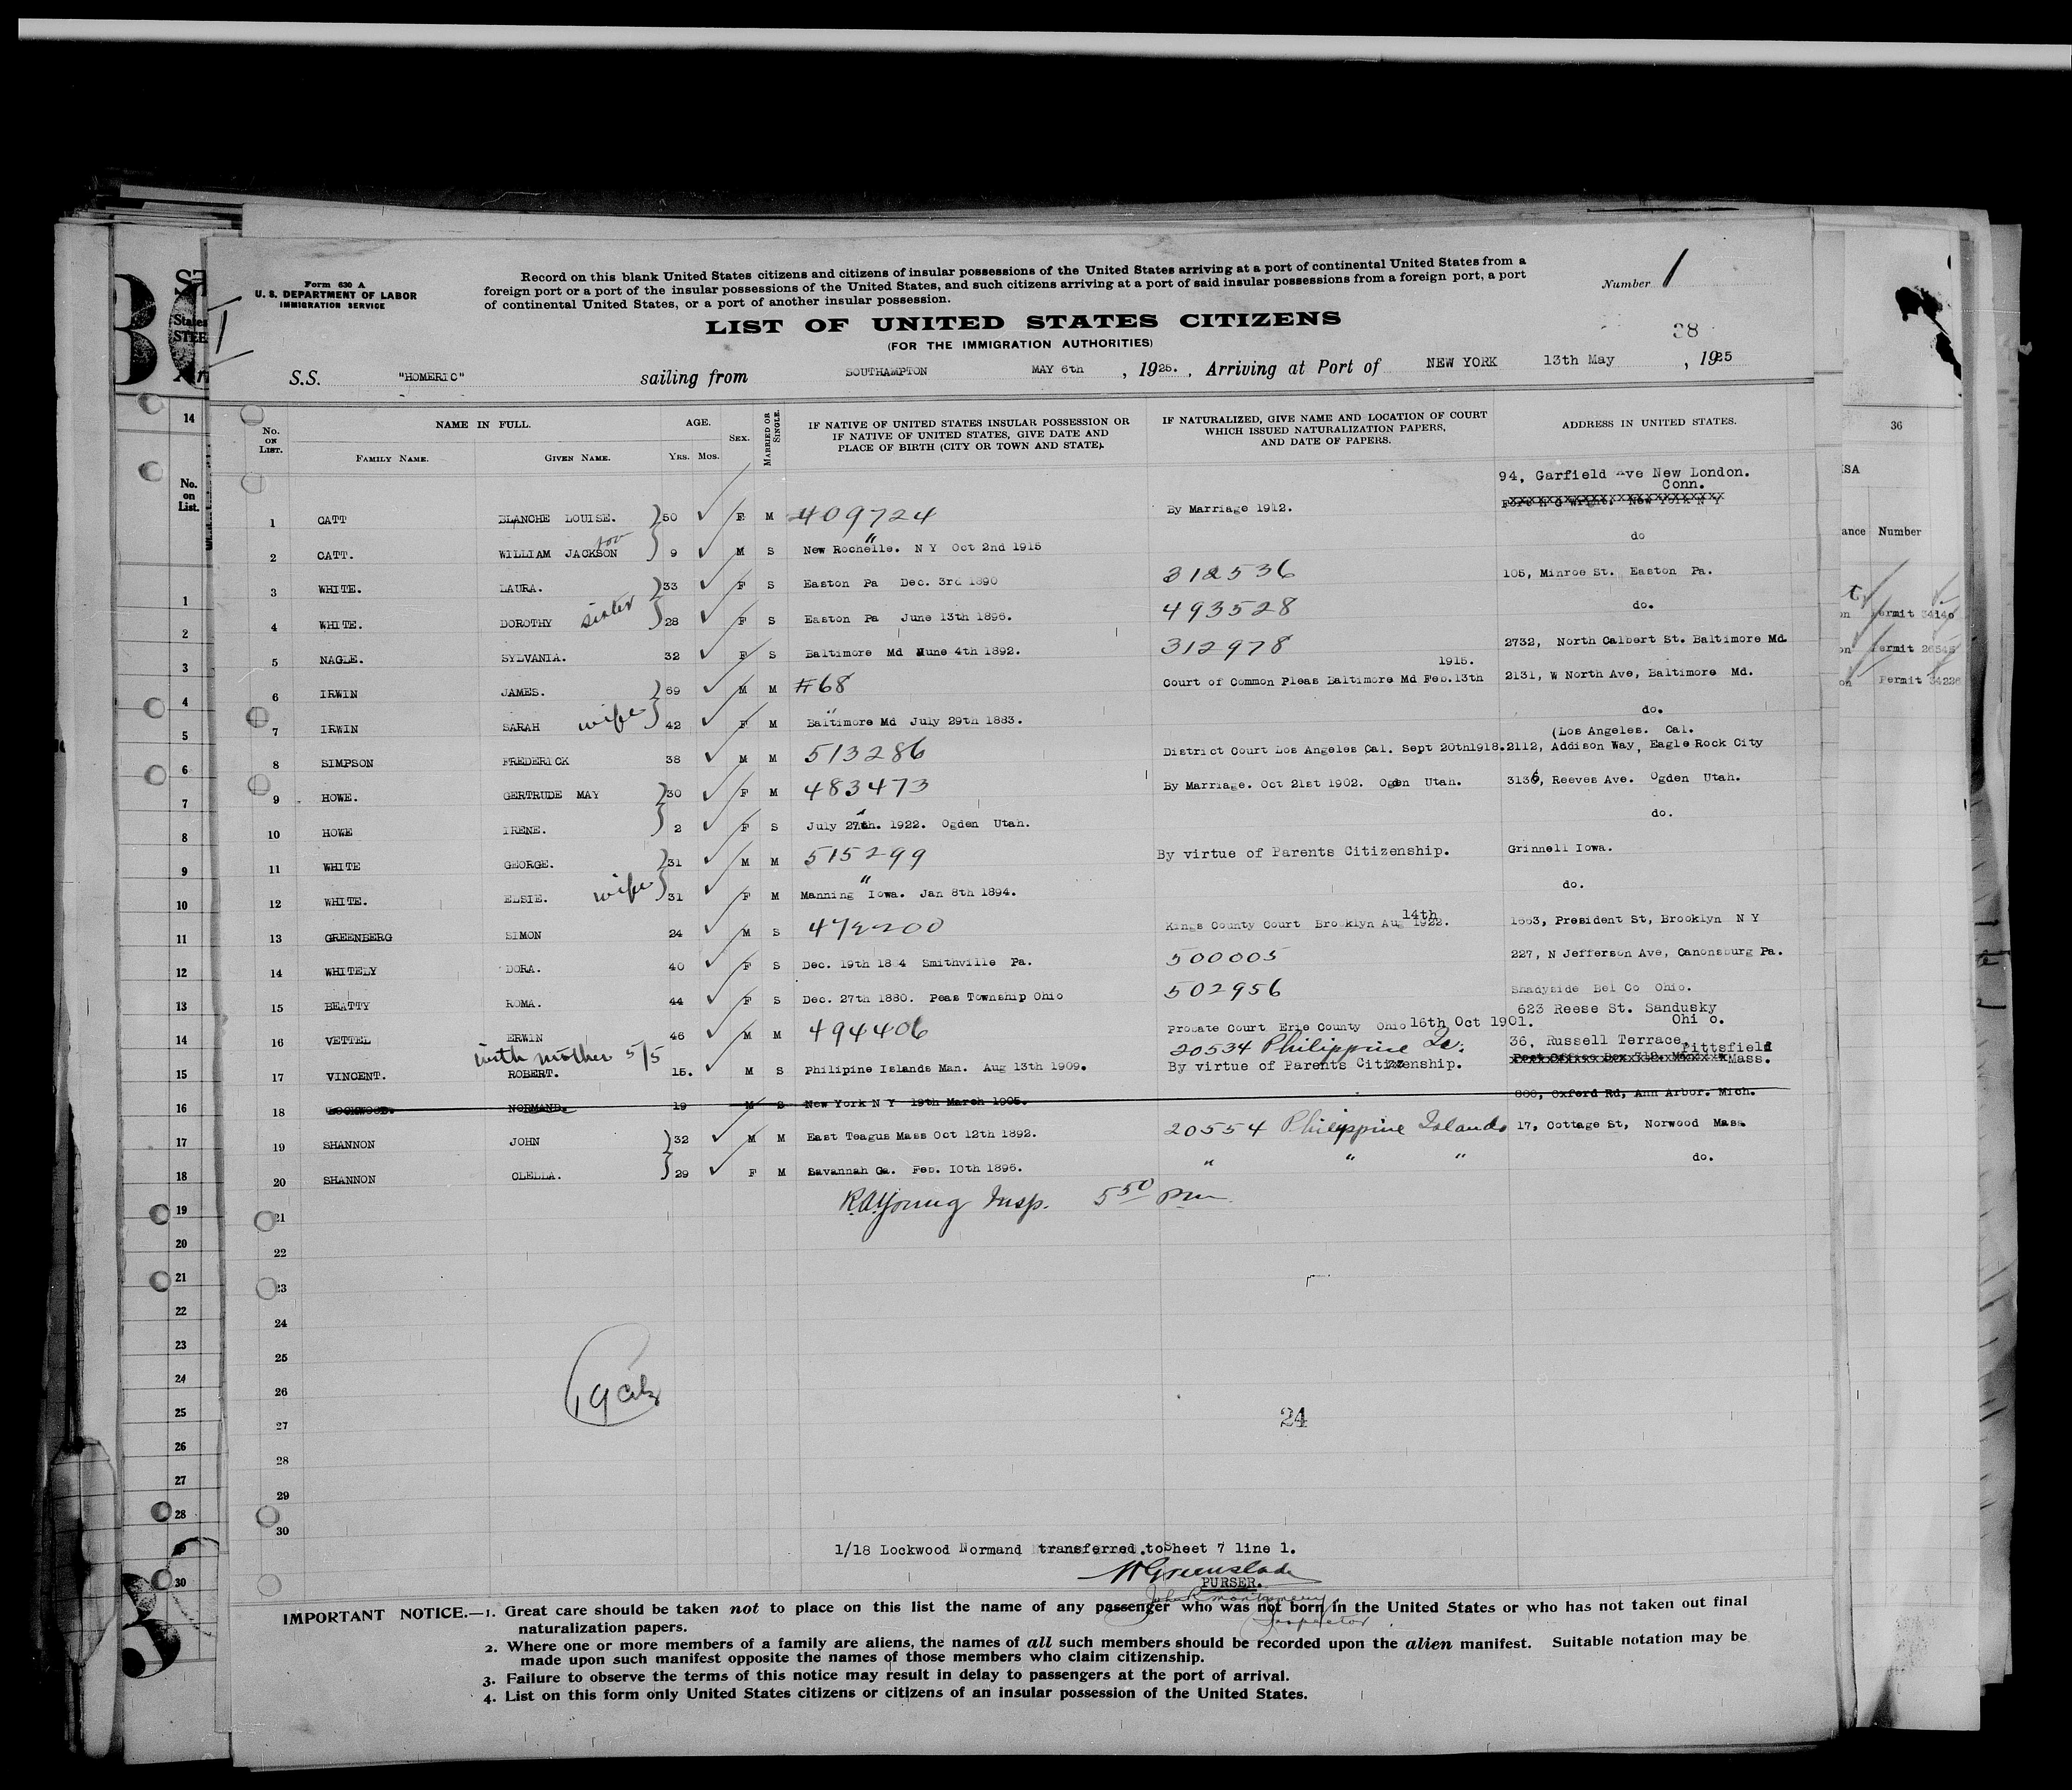 Form 630 A
U. S. DEPARTMENT OF LABOR
IMMIGRATION SERVICE
Record on this blank United States citizens and citizens of insular possessions of the United States arriving at a port of continental United States from a
foreign port or a port of the insular possessions of the United States, and such citizens arriving at a port of said insular possessions from a foreign port, a port
of continental United States, or a port of another insular possession.
Number 1
LIST OF UNITED STATES CITIZENS
(FOR THE IMMIGRATION AUTHORITIES)
38
S.S. "HOMERIC" sailing from SOUTHAMPTON MAY 6th , 1925. , Arriving at Port of NEW YORK 13th May , 1925
No. ON LIST. NAME IN FULL. FAMILY NAME. GIVEN NAME. AGE. YRS. MOS. SEX. MARRIED OR SINGLE. IF NATIVE OF UNITED STATES INSULAR POSSESSION OR IF NATIVE OF UNITED STATES, GIVE DATE AND PLACE OF BIRTH (CITY OR TOWN AND STATE). IF NATURALIZED, GIVE NAME AND LOCATION OF COURT WHICH ISSUED NATURALIZATION PAPERS, AND DATE OF PAPERS. ADDRESS IN UNITED STATES.
94, Garfield Ave New London.
Conn.
1 CATT BLANCHE LOUISE. 50 F M 409724 By Marriage 1912. Fort H G Wright. New York N Y
2 CATT. WILLIAM JACKSON son 9 M S New Rochelle. N Y Oct 2nd 1915 do
3 WHITE. LAURA. 33 F S Easton Pa Dec. 3rd 1890 312536 105, Minroe St. Easton Pa.
4 WHITE. DOROTHY sister 28 F S Easton Pa June 13th 1896. 493528 do.
5 NAGLE. SYLVANIA. 32 F S Baltimore Md June 4th 1892. 312978 2732, North Calbert St. Baltimore Md.
1915.
6 IRWIN JAMES. 69 M M #68 Court of Common Pleas Baltimore Md Feb.13th 2131, W North Ave, Baltimore Md.
7 IRWIN SARAH wife 42 F M Baltimore Md July 29th 1883. do.
(Los Angeles. Cal.
8 SIMPSON FREDERICK 38 M M 513286 District Court Los Angeles Cal. Sept 20th1918. 2112, Addison Way, Eagle Rock City
9 HOWE. GERTRUDE MAY 30 F M 483473 By Marriage. Oct 21st 1902. Ogden Utah. 3136, Reeves Ave. Ogden Utah.
10 HOWE IRENE. 2 F S July 27th. 1922. Ogden Utah. do.
11 WHITE GEORGE. 31 M M 515299 By virtue of Parents Citizenship. Grinnell Iowa.
12 WHITE. ELSIE. wife 31 F M Manning Iowa. Jan 8th 1894. do.
14th
13 GREENBERG SIMON 24 M S 472200 Kings County Court Brooklyn Aug 1922. 1553, President St, Brooklyn N Y
14 WHITELY DORA. 40 F S Dec. 19th 1884 Smithville Pa. 500005 227, N Jefferson Ave, Canonsburg Pa.
15 BEATTY ROMA. 44 F S Dec. 27th 1880. Peas Township Ohio 502956 Shadyside Bel Co Ohio.
623 Reese St. Sandusky
Ohi o.
16 VETTEL ERWIN 46 M M 494406 Probate Court Erie County Ohio 16th Oct 1901.
with mother 5/5 20534 Philippine Is. 36, Russell Terrace, Pittsfield
17 VINCENT. ROBERT. 15. M S Philipine Islands Man. Aug 13th 1909. By virtue of Parents Citizenship. Mass.
18 LOCKWOOD. NORMAND. 19 M S New York N Y 19th March 1905. 800, Oxford Rd, Ann Arbor. Mich.
19 SHANNON JOHN 32 M M East Teagus Mass Oct 12th 1892. 20554 Philippine Islands 17, Cottage St, Norwood Mass
20 SHANNON CLELLA. 29 F M Savannah Ga. Feb. 10th 1896. " " " do.
R.A.Young Insp. 5 50 pm
21
22
23
24
25
26
27
28
29
30
24
1/18 Lockwood Normand transferred to Sheet 7 line 1.
W Greenslade
PURSER.
John R Montgomery
Inspector
IMPORTANT NOTICE.—1. Great care should be taken not to place on this list the name of any passenger who was not born in the United States or who has not taken out final
naturalization papers.
2. Where one or more members of a family are aliens, the names of all such members should be recorded upon the alien manifest. Suitable notation may be
made upon such manifest opposite the names of those members who claim citizenship.
3. Failure to observe the terms of this notice may result in delay to passengers at the port of arrival.
4. List on this form only United States citizens or citizens of an insular possession of the United States.